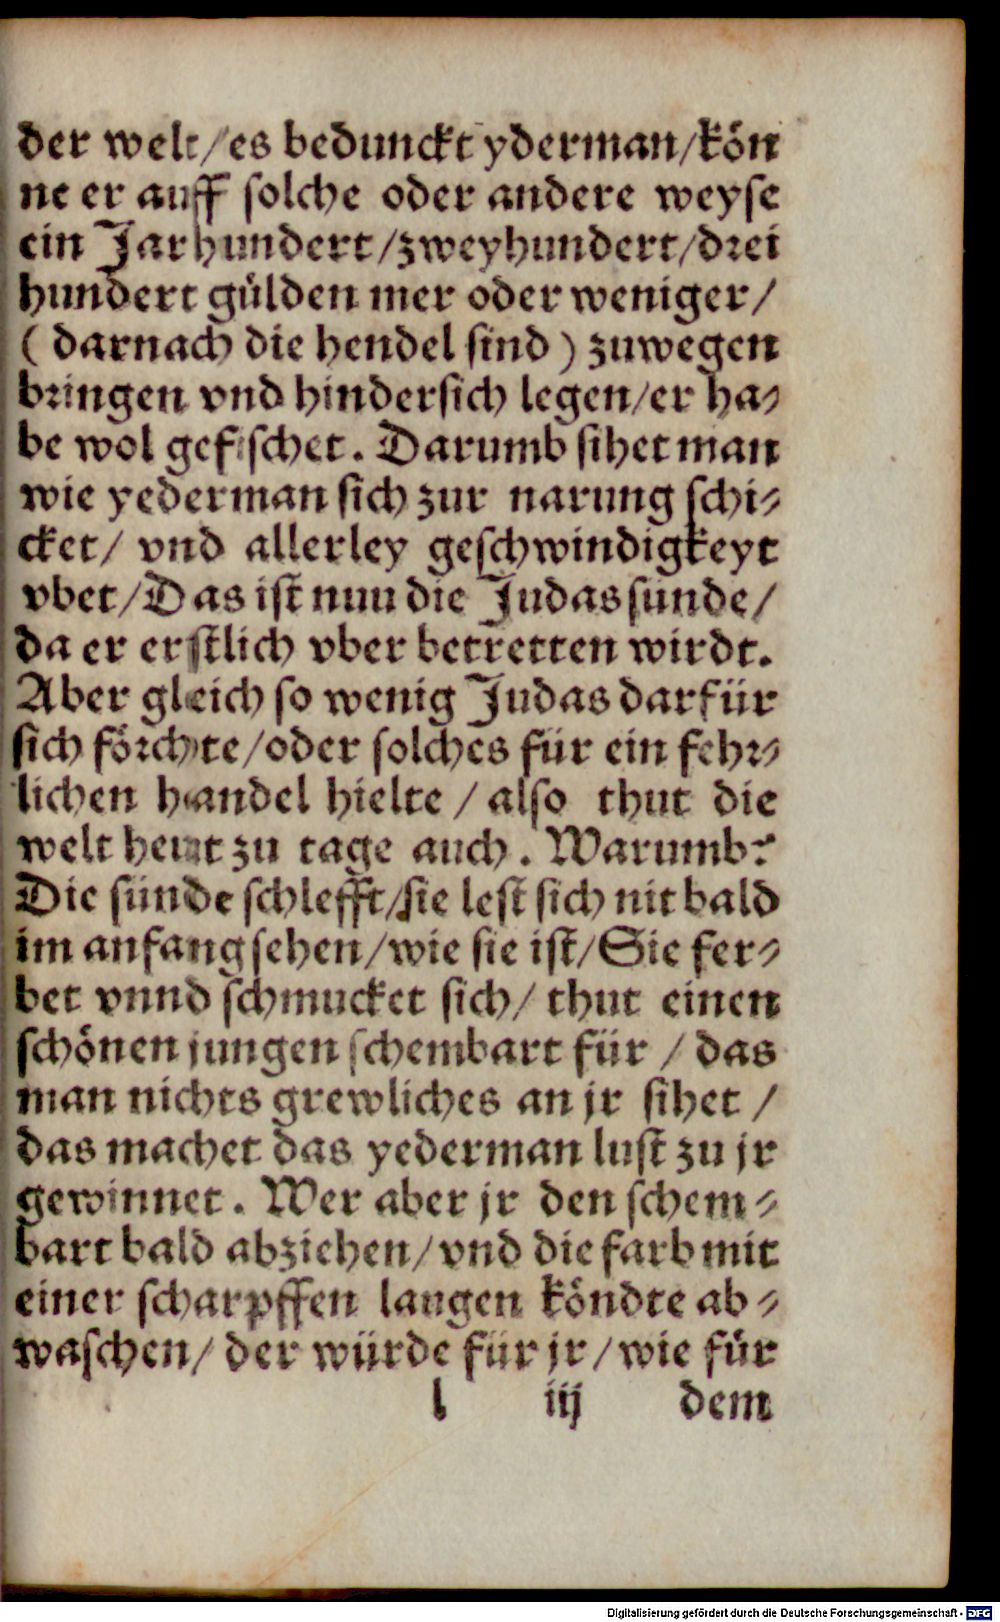 der welt/es bedunckt yderman/kön
ne er auff solche oder andere weyse
ein Jar hundert/zweyhundert/drei
hundert gülden mer oder weniger/
( darnach die hendel sind ) zuwegen
bringen vnd hindersich legen/er ha⸗
be wol gefischet. Darumb sihet man
wie yederman sich zur narung schi⸗
cket/ vnd allerley geschwindigkeyt
vbet/Das ist nun die Judas sünde/
da er erstlich vber betretten wirdt.
Aber gleich so wenig Judas darfür
sich förchte/oder solches für ein fehr⸗
lichen handel hielte / also thut die
welt heut zu tage auch. Warumb?
Die sünde schlefft/sie lest sich nit bald
im anfang sehen/wie sie ist/Sie fer⸗
bet vnnd schmucket sich/ thut einen
schönen jungen schembart für / das
man nichts grewliches an jr sihet /
das machet das yederman lust zu jr
gewinnet. Wer aber jr den schem⸗
bart bald abziehen/vnd die farb mit
einer scharpffen laugen köndte ab⸗
waschen/ der würde für jr/wie für
l iij dem
Digitalisierung gefördert durch die Deutsche Forschungsgemeinschaft - DFG